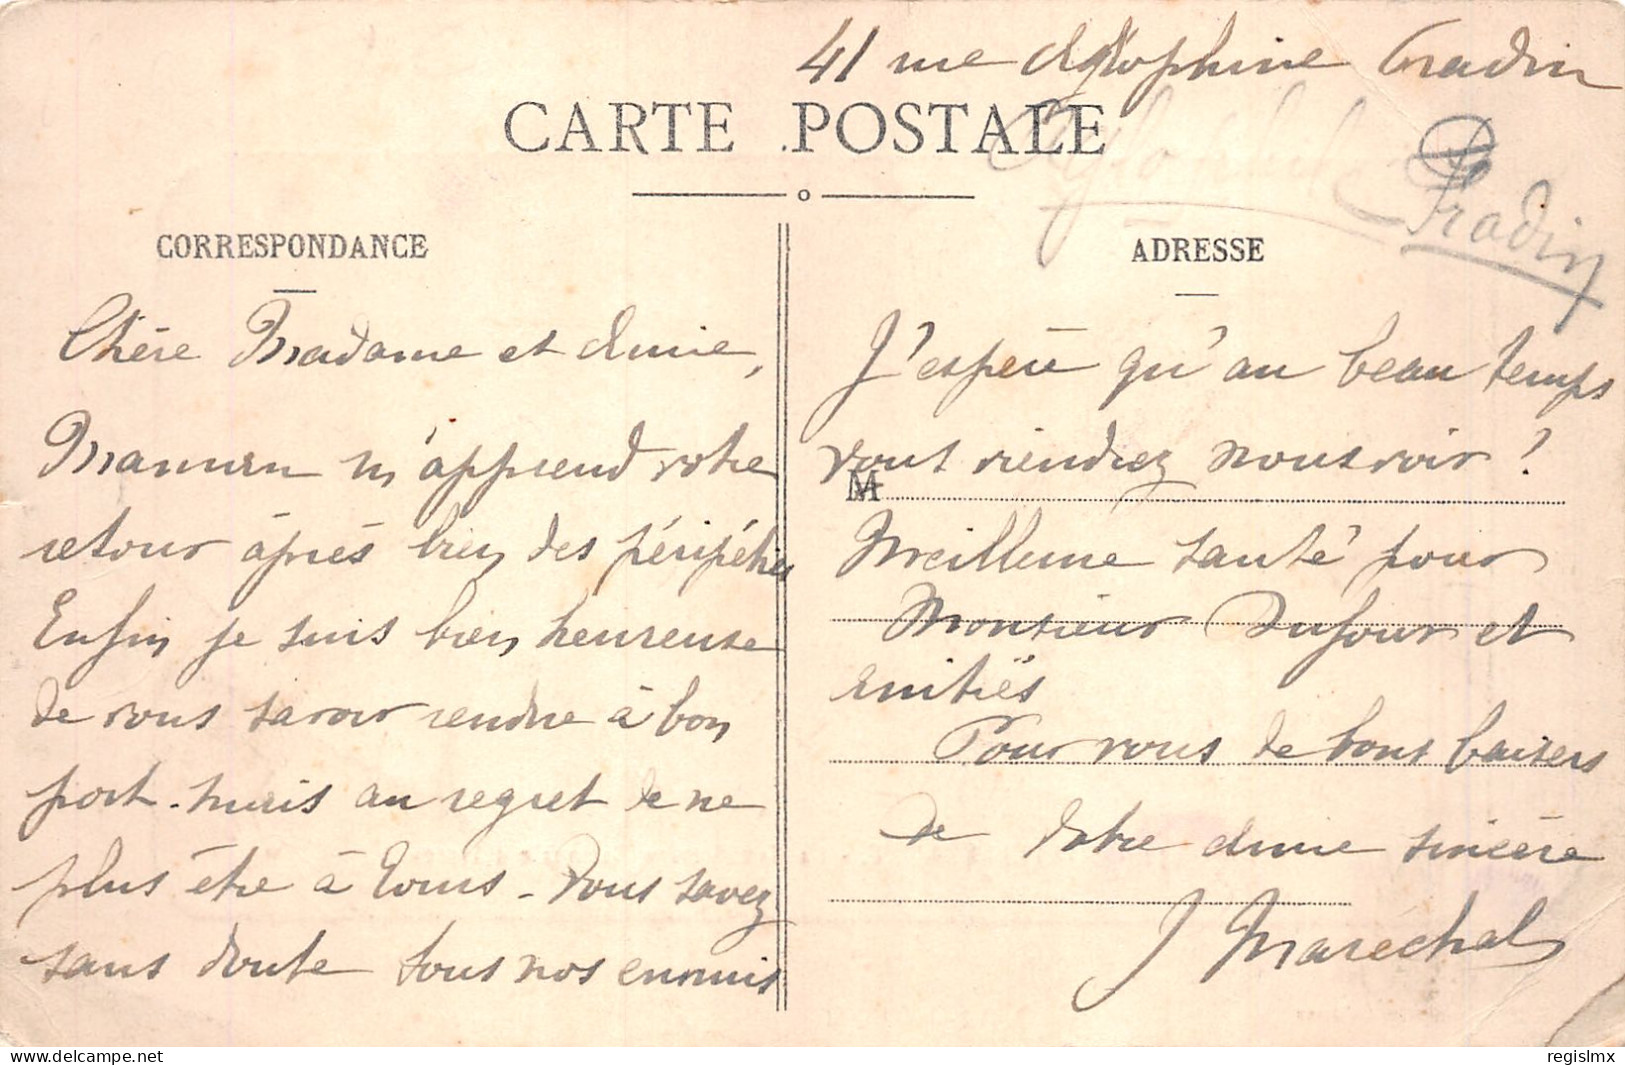 41 rue Aglophine Pradin
CARTE POSTALE
Pradin
CORRESPONDANCE
Chère Madame et Amie,
Maman m'apprend votre
retour après bien des péripéties
Enfin je suis bien heureuse
de vous savoir rendue à bon
port. mais au regret de ne
plus être à Tours - Vous savez
sans doute tous nos ennuis
ADRESSE
J'espère qu'au beau temps
vous viendrez nous voir !
M
Meilleure santé pour
Monsieur Dufour et
amitiés
Pour vous de bons baisers
de votre amie sincère
J Maréchal
regislmx
delcampe.net